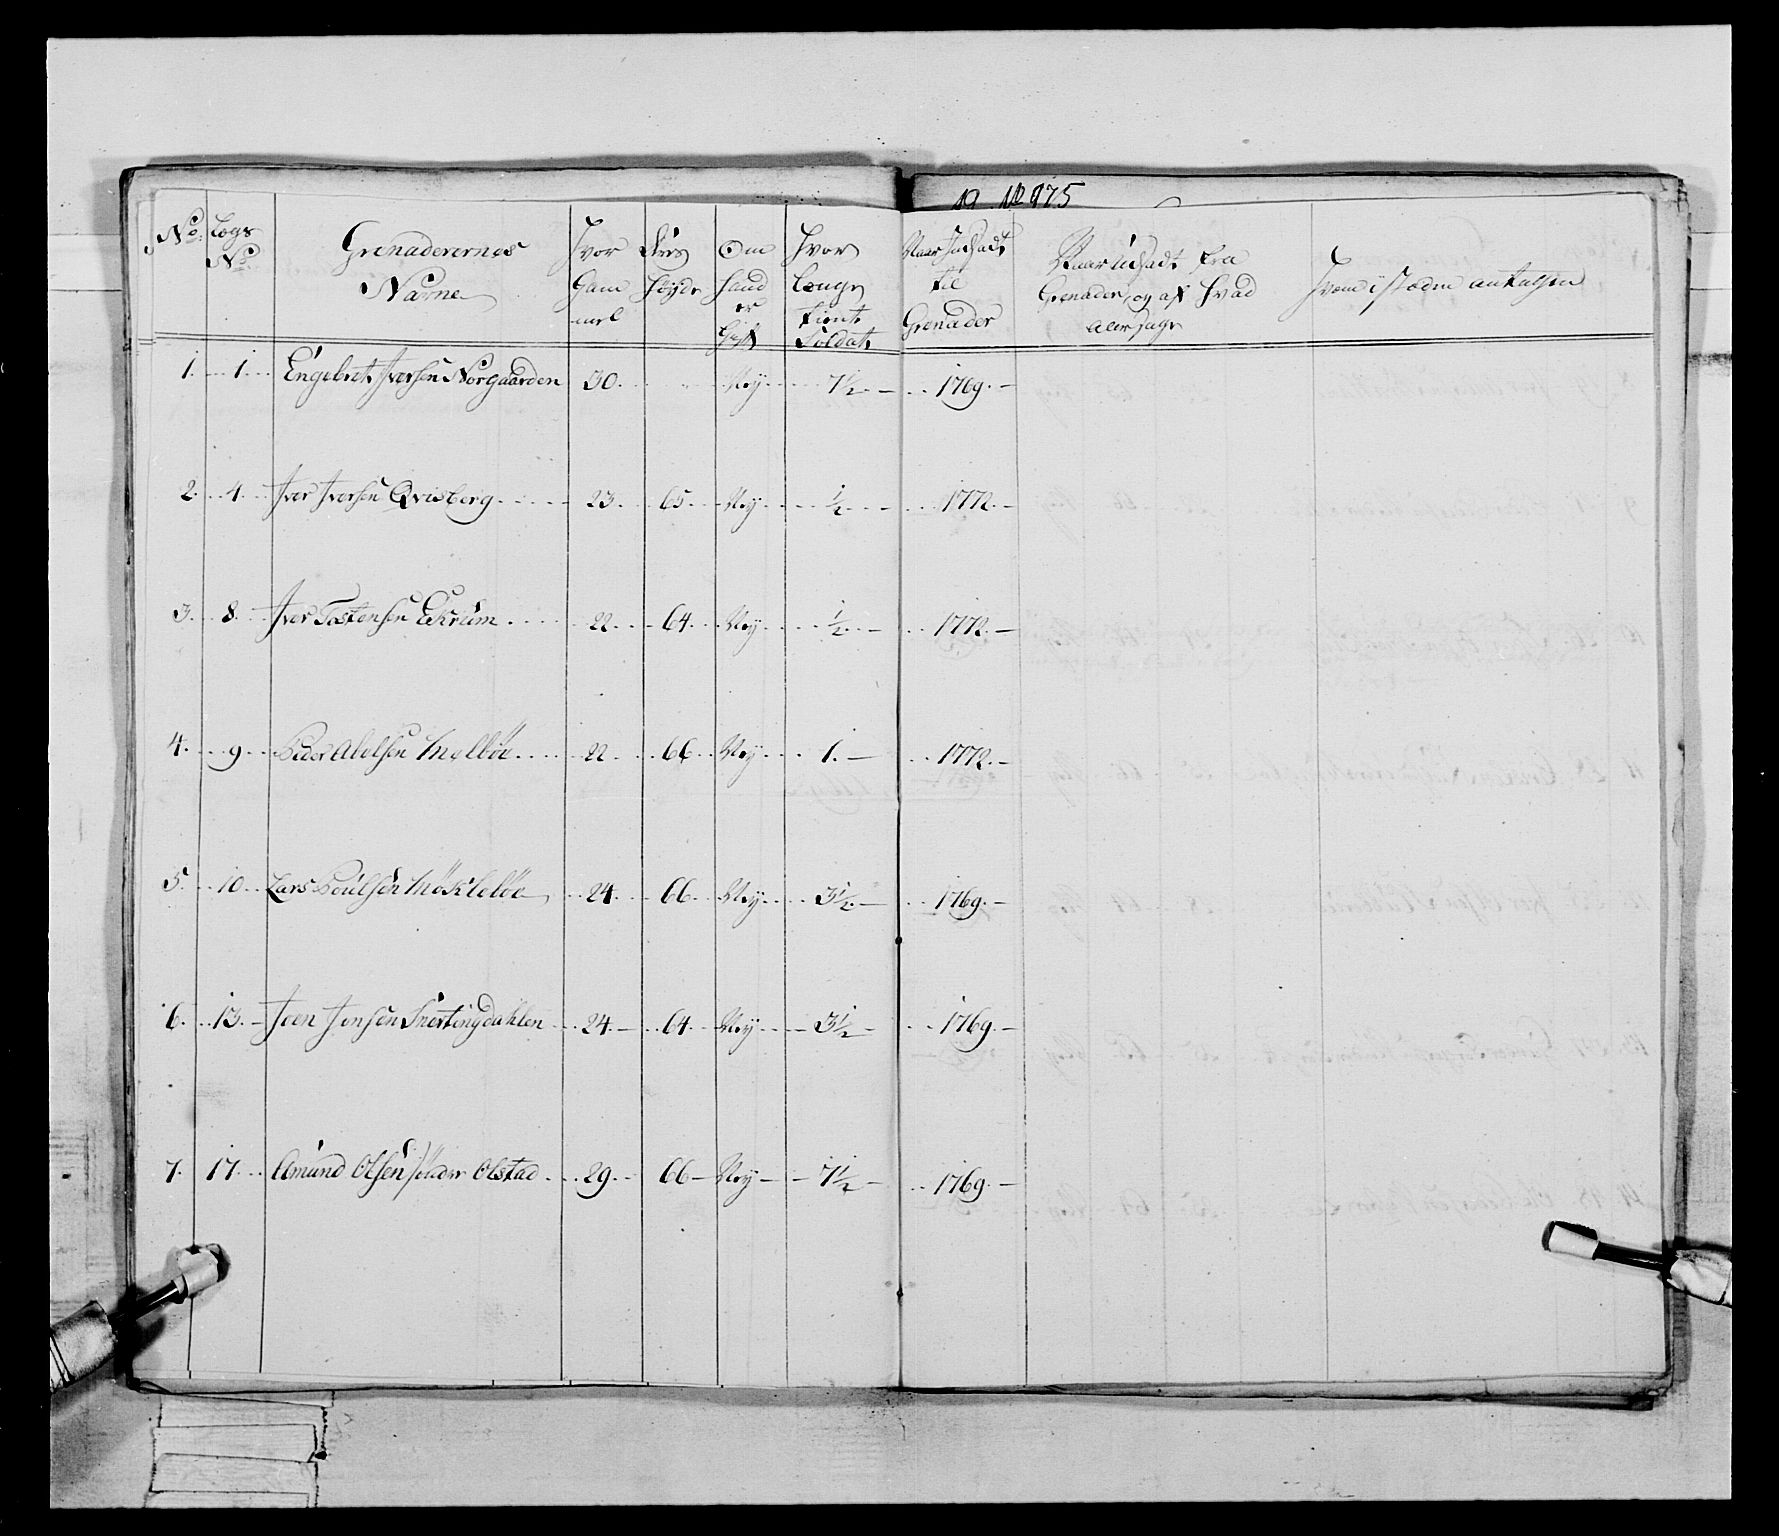 No. Lægs No. Grenaderernes Navne Hvor Gammel Høyde Om hand er Gift Hvor Længe tient Soldat Naar Indsadt til Grenader Naar Udsadt fra Grenader, og af hvad Aarsage Hvem i stæden antagen
1. 1. Engebret Iversen Norgaarden 30. Ney 7½ 1769.
2. 4. Iver Iversen Qvisberg 23. 65. Ney ½ 1772.
3. 8. Iver Tostensen Ekrum 22. 64. Ney ½ 1772.
4. 9. Peder Abelsen Melbøe 22. 66. Ney 1. 1772.
5. 10. Lars Poulsen Møklebøe 24. 66. Ney 3½ 1769.
6. 13. Joen Jonsen Snertingdahlen 24. 64. Ney 3½ 1769.
7. 17. Amund Olsen Olstad 29. 66 Ney 7½ 1769.